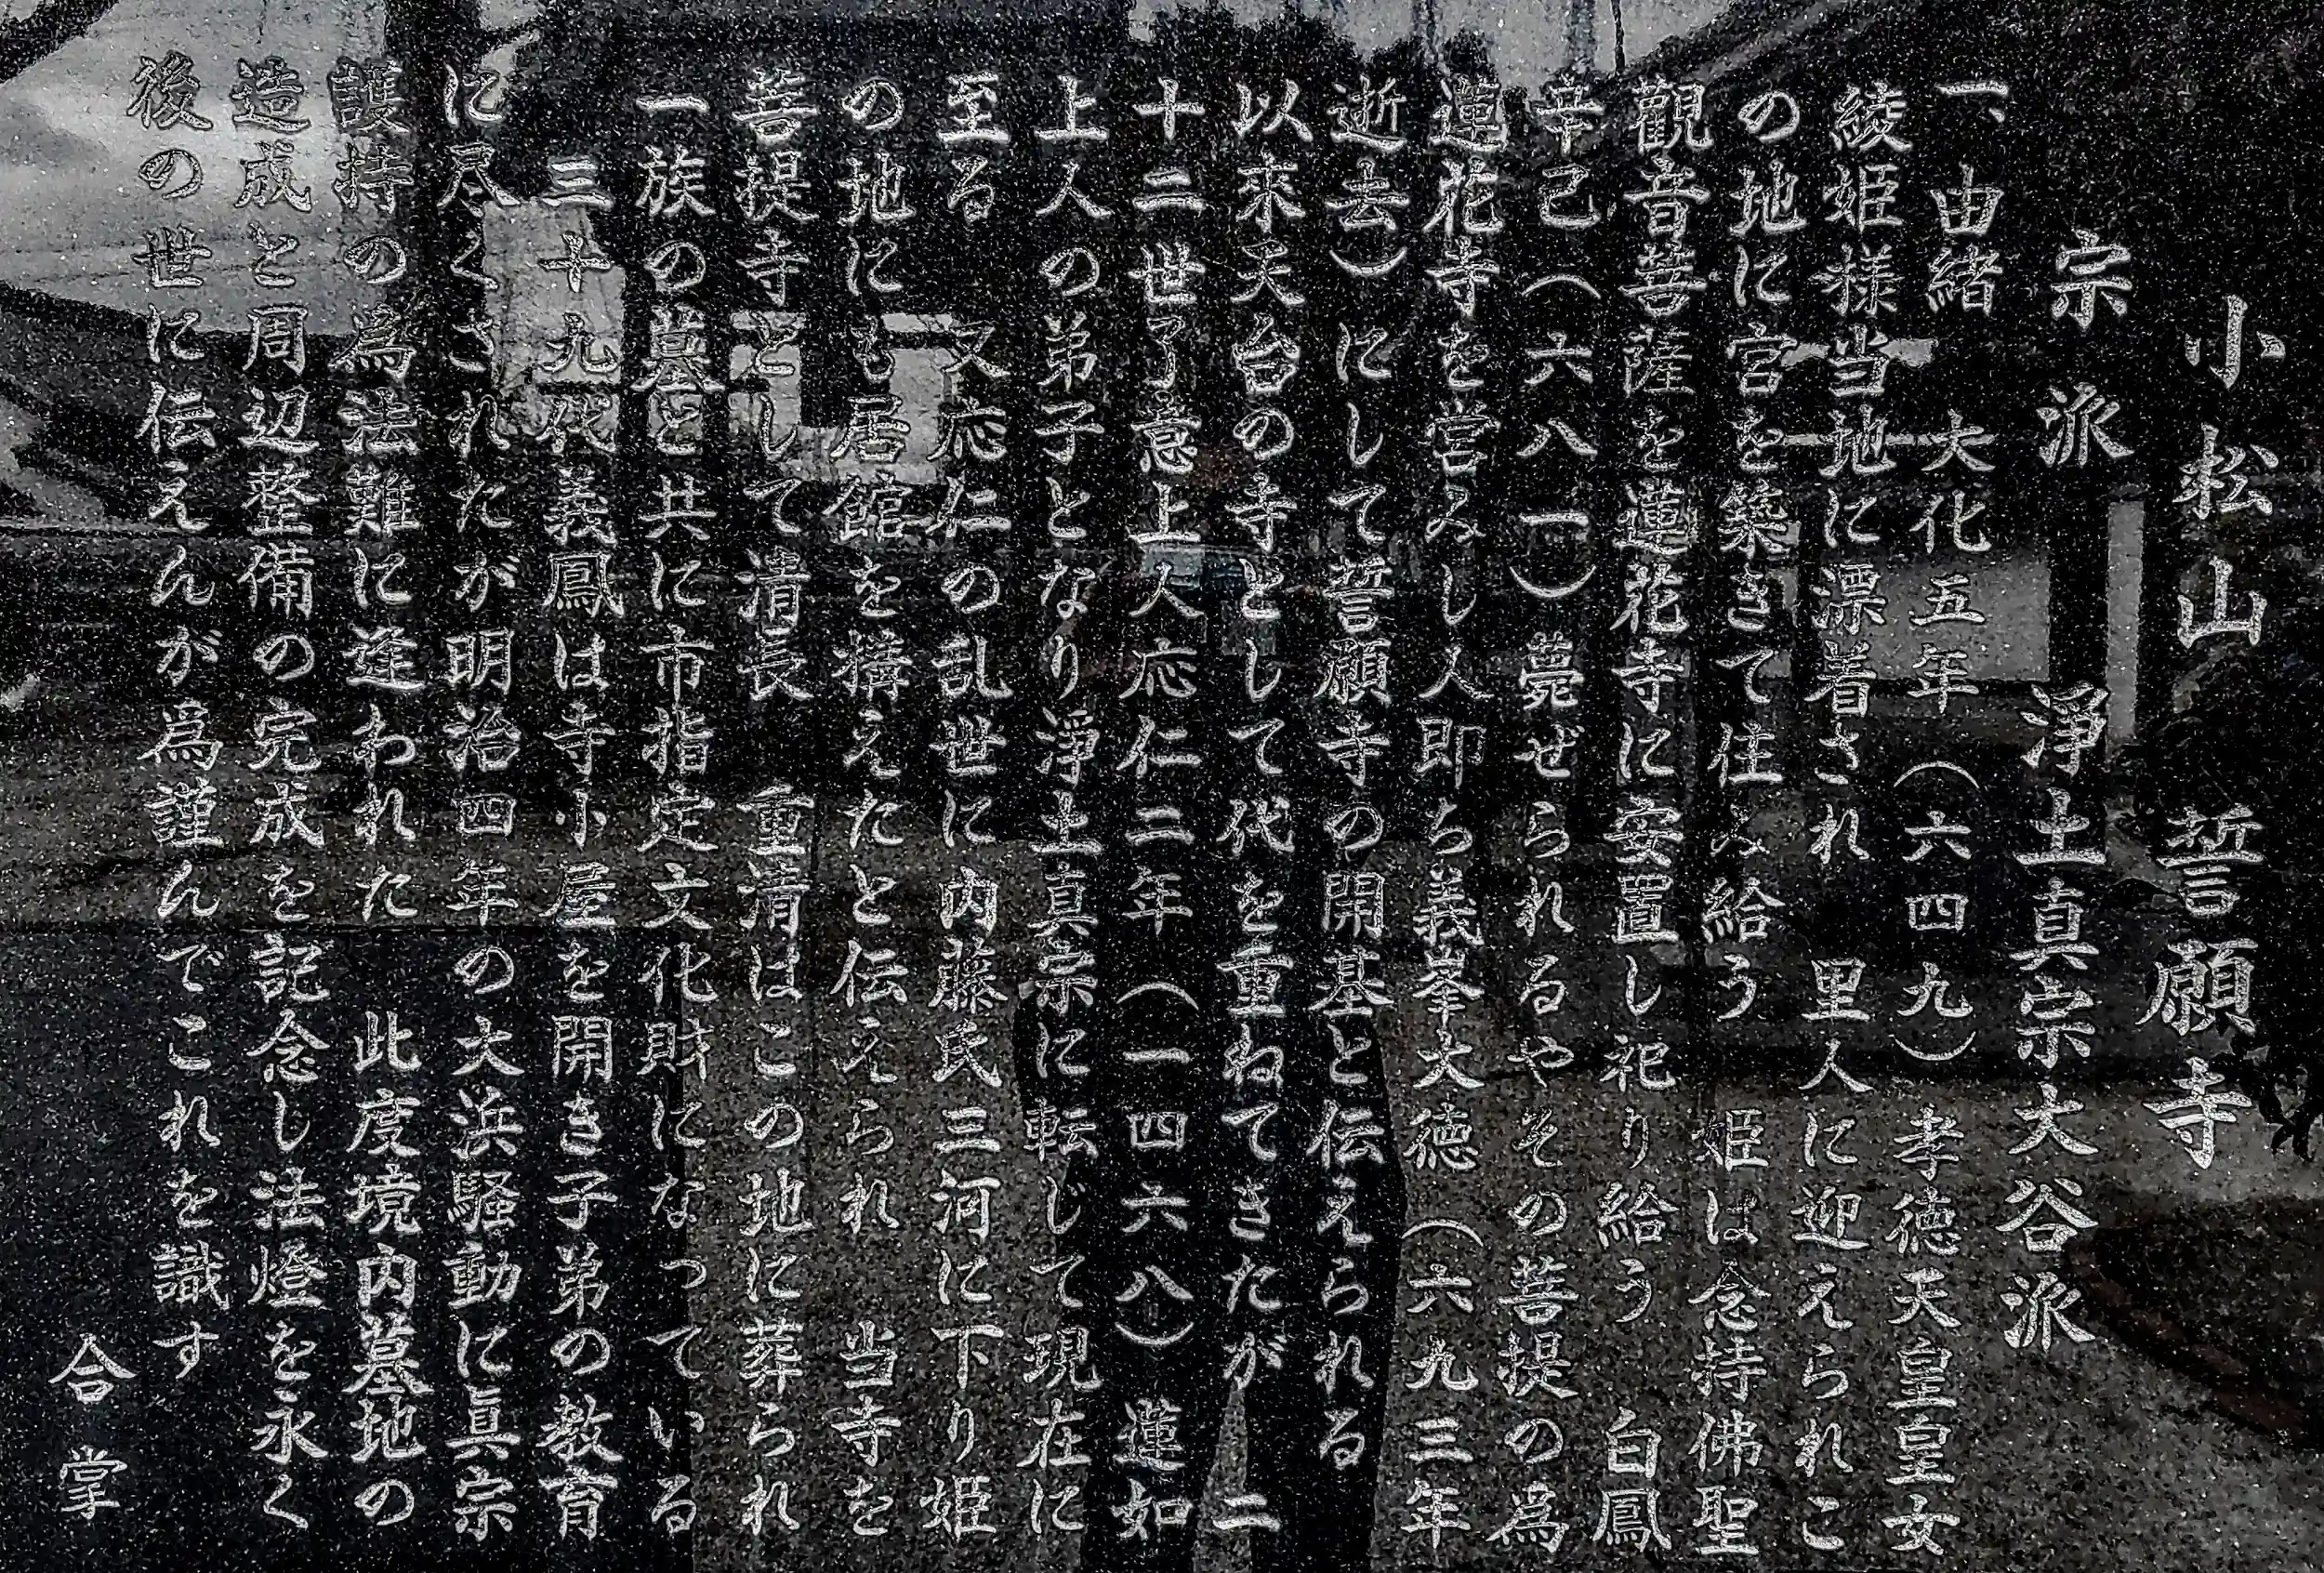 小松山　誓願寺
宗　派　　淨土真宗大谷派
一、由緒　大化五年（六四九）孝徳天皇皇女
綾姫様当地に漂着され　里人に迎えられこ
の地に宮を築きて住み給う　姫は念持佛聖
觀音菩薩を蓮花寺に安置し祀り給う　白鳳
辛己（六八一）薨ぜられるやその菩提の為
蓮花寺を営みし人即ち義峯大徳（六九三年
逝去）にして誓願寺の開基と伝えられる
以來天台の寺として代を重ねてきたが　二
十二世了意上人応仁二年（一四六八）蓮如
上人の弟子となり淨土真宗に転じて現在に
至る　又応仁の乱世に内藤氏三河に下り姫
の地にも居館を構えたと伝えられ　当寺を
菩提寺として清長　重清はこの地に葬られ
一族の墓と共に市指定文化財になっている
三十九代義鳳は寺小屋を開き子弟の教育
に尽くされたが明治四年の大浜騒動に眞宗
護持の為法難に逢われた　此度境内墓地の
造成と周辺整備の完成を記念し法燈を永く
後の世に伝えんが為謹んでこれを識す
合　掌